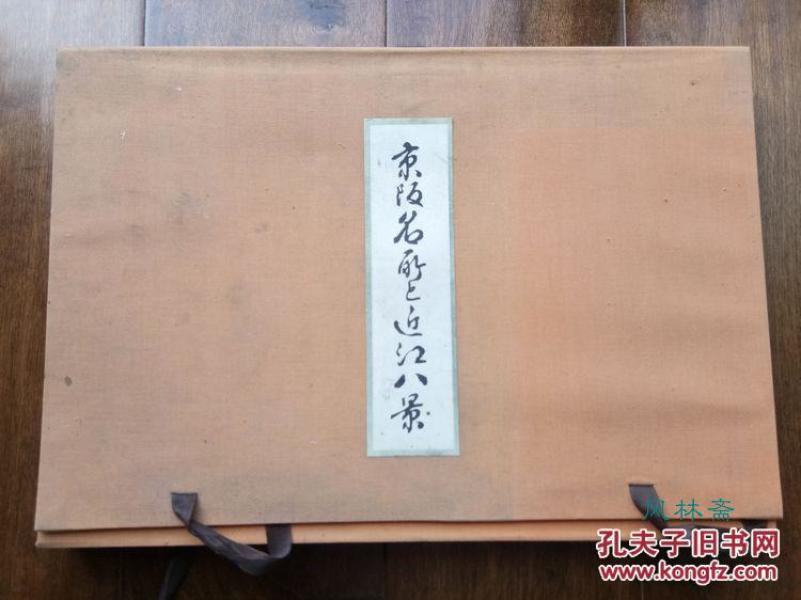 京阪名所と近江八景
风林斋
孔夫子旧书网
www.kongfz.com